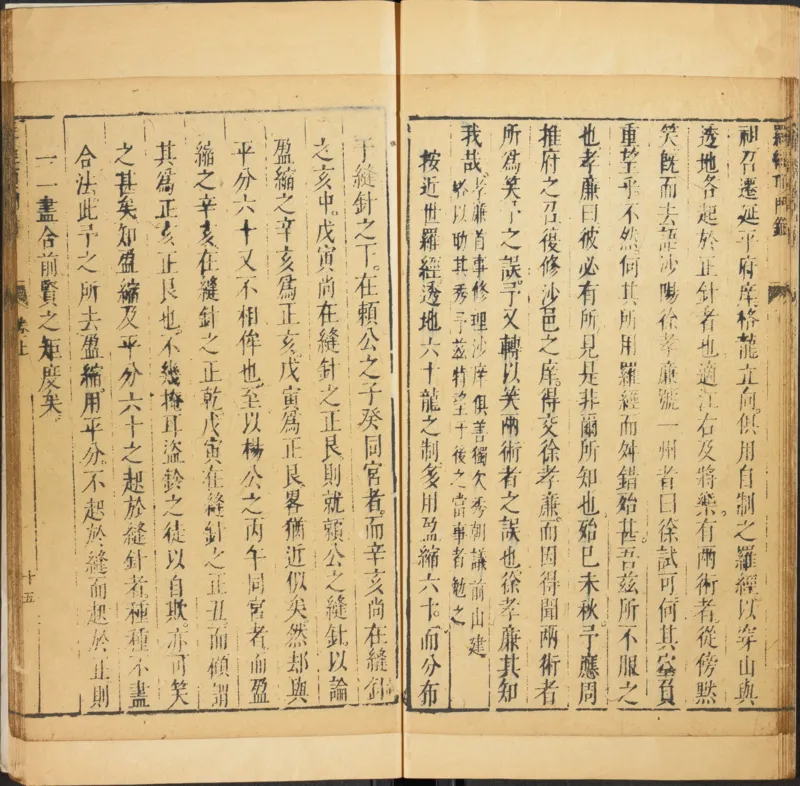 羅經頂門鍼
祖召遷延平府庠格龍立向俱用自制之羅經以穿山與
透地各起於正針者也適江右及將樂有兩術者從傍默
笑旣而去語沙陽徐孝廉號一州者曰徐試可何其空負
重望乎不然何其所用羅經而舛錯殆甚吾茲所不服之
也孝廉曰彼必有所見是非爾所知也殆巳未秋予應周
推府之召復修沙邑之庠得交徐孝廉而因得聞兩術者
所爲笑予之誤予又轉以笑兩術者之誤也徐孝廉其知
我哉孝廉首事修理沙庠俱善獨欠秀朝議前山建
塔以助其秀予茲特望于後之當事者勉之
按近世羅經透地六十龍之制多用盈縮六十而分布
于縫針之下在賴公之子癸同宮者而辛亥尚在縫針
之亥中戊寅尚在縫針之正艮則就賴公之縫針以論
盈縮之辛亥爲正亥戊寅爲正艮畧猶近似矣然却與
平分六十又不相侔也至以楊公之丙午同宮者而盈
縮之辛亥在縫針之正乾戊寅在縫針之正丑而傾謂
其爲正亥正艮也不幾掩耳盜鈴之徒以自欺亦可笑
之甚矣知盈縮及平分六十之起於縫針者種種不盡
合法此予之所去盈縮用平分不起於縫而起於正則
一一盡合前賢之矩度矣
卷上
十五